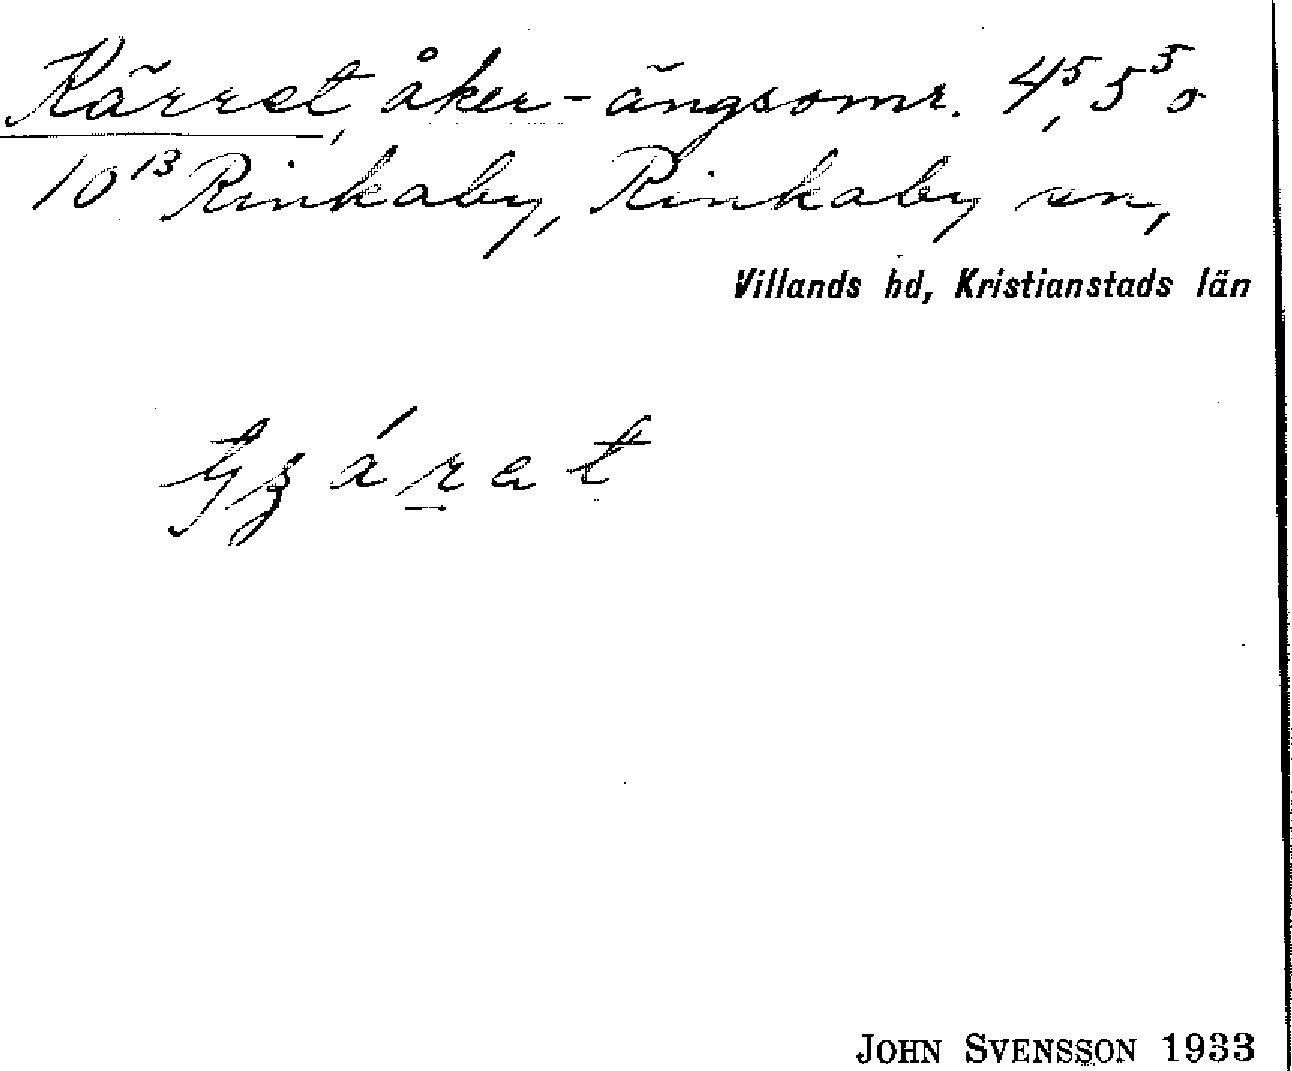 Kärret, åker-ängsomr. 4⁵, 5⁵ o
10¹³ Rinkaby, Rinkaby sn,
Villands hd, Kristianstads län
JOHN SVENSSON 1933